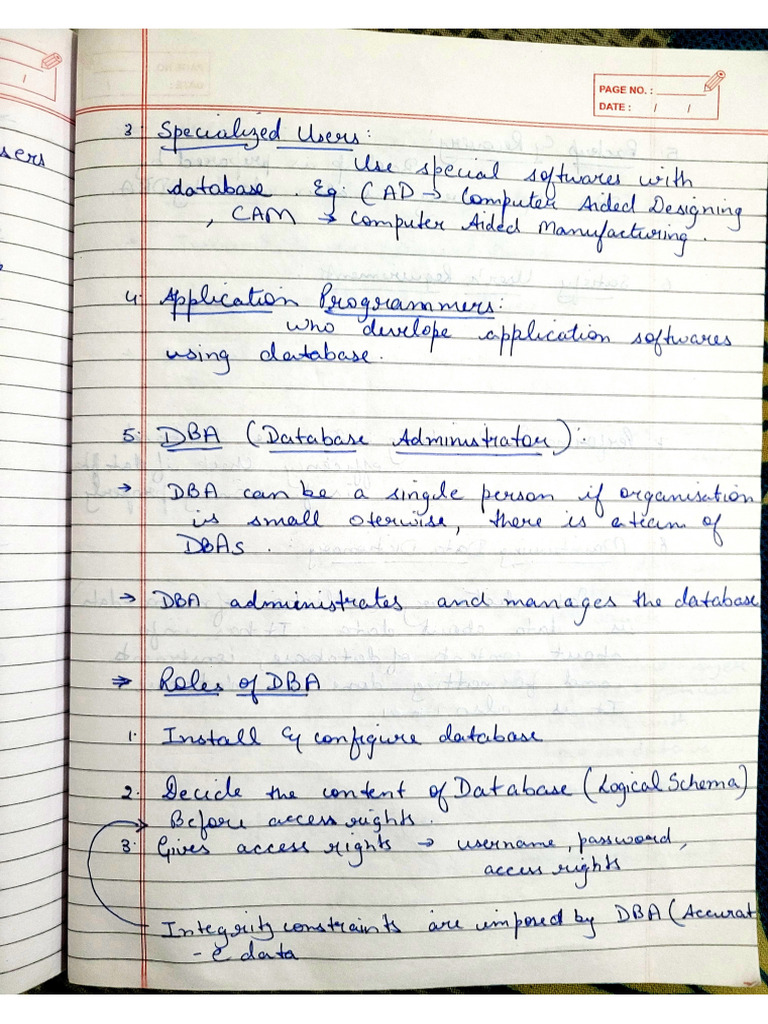 PAGE NO. :
DATE : / /
/
sers
3. Specialized Users:
Use special softwares with
database. Eg: CAD → Computer Aided Designing
, CAM → Computer Aided Manufacturing.
4. Application Programmers:
who develope application softwares
using database.
5. DBA (Database Administrator):
→ DBA can be a single person if organisation
is small oterwise, there is a team of
DBAs.
→ DBA administrates and manages the database
⇒ Roles of DBA
1. Install & configure database
2. Decide the content of Database (Logical Schema)
Before access rights.
3. Gives access rights → username, password,
access rights
Integrity constraints are imposed by DBA (Accurat
- e data